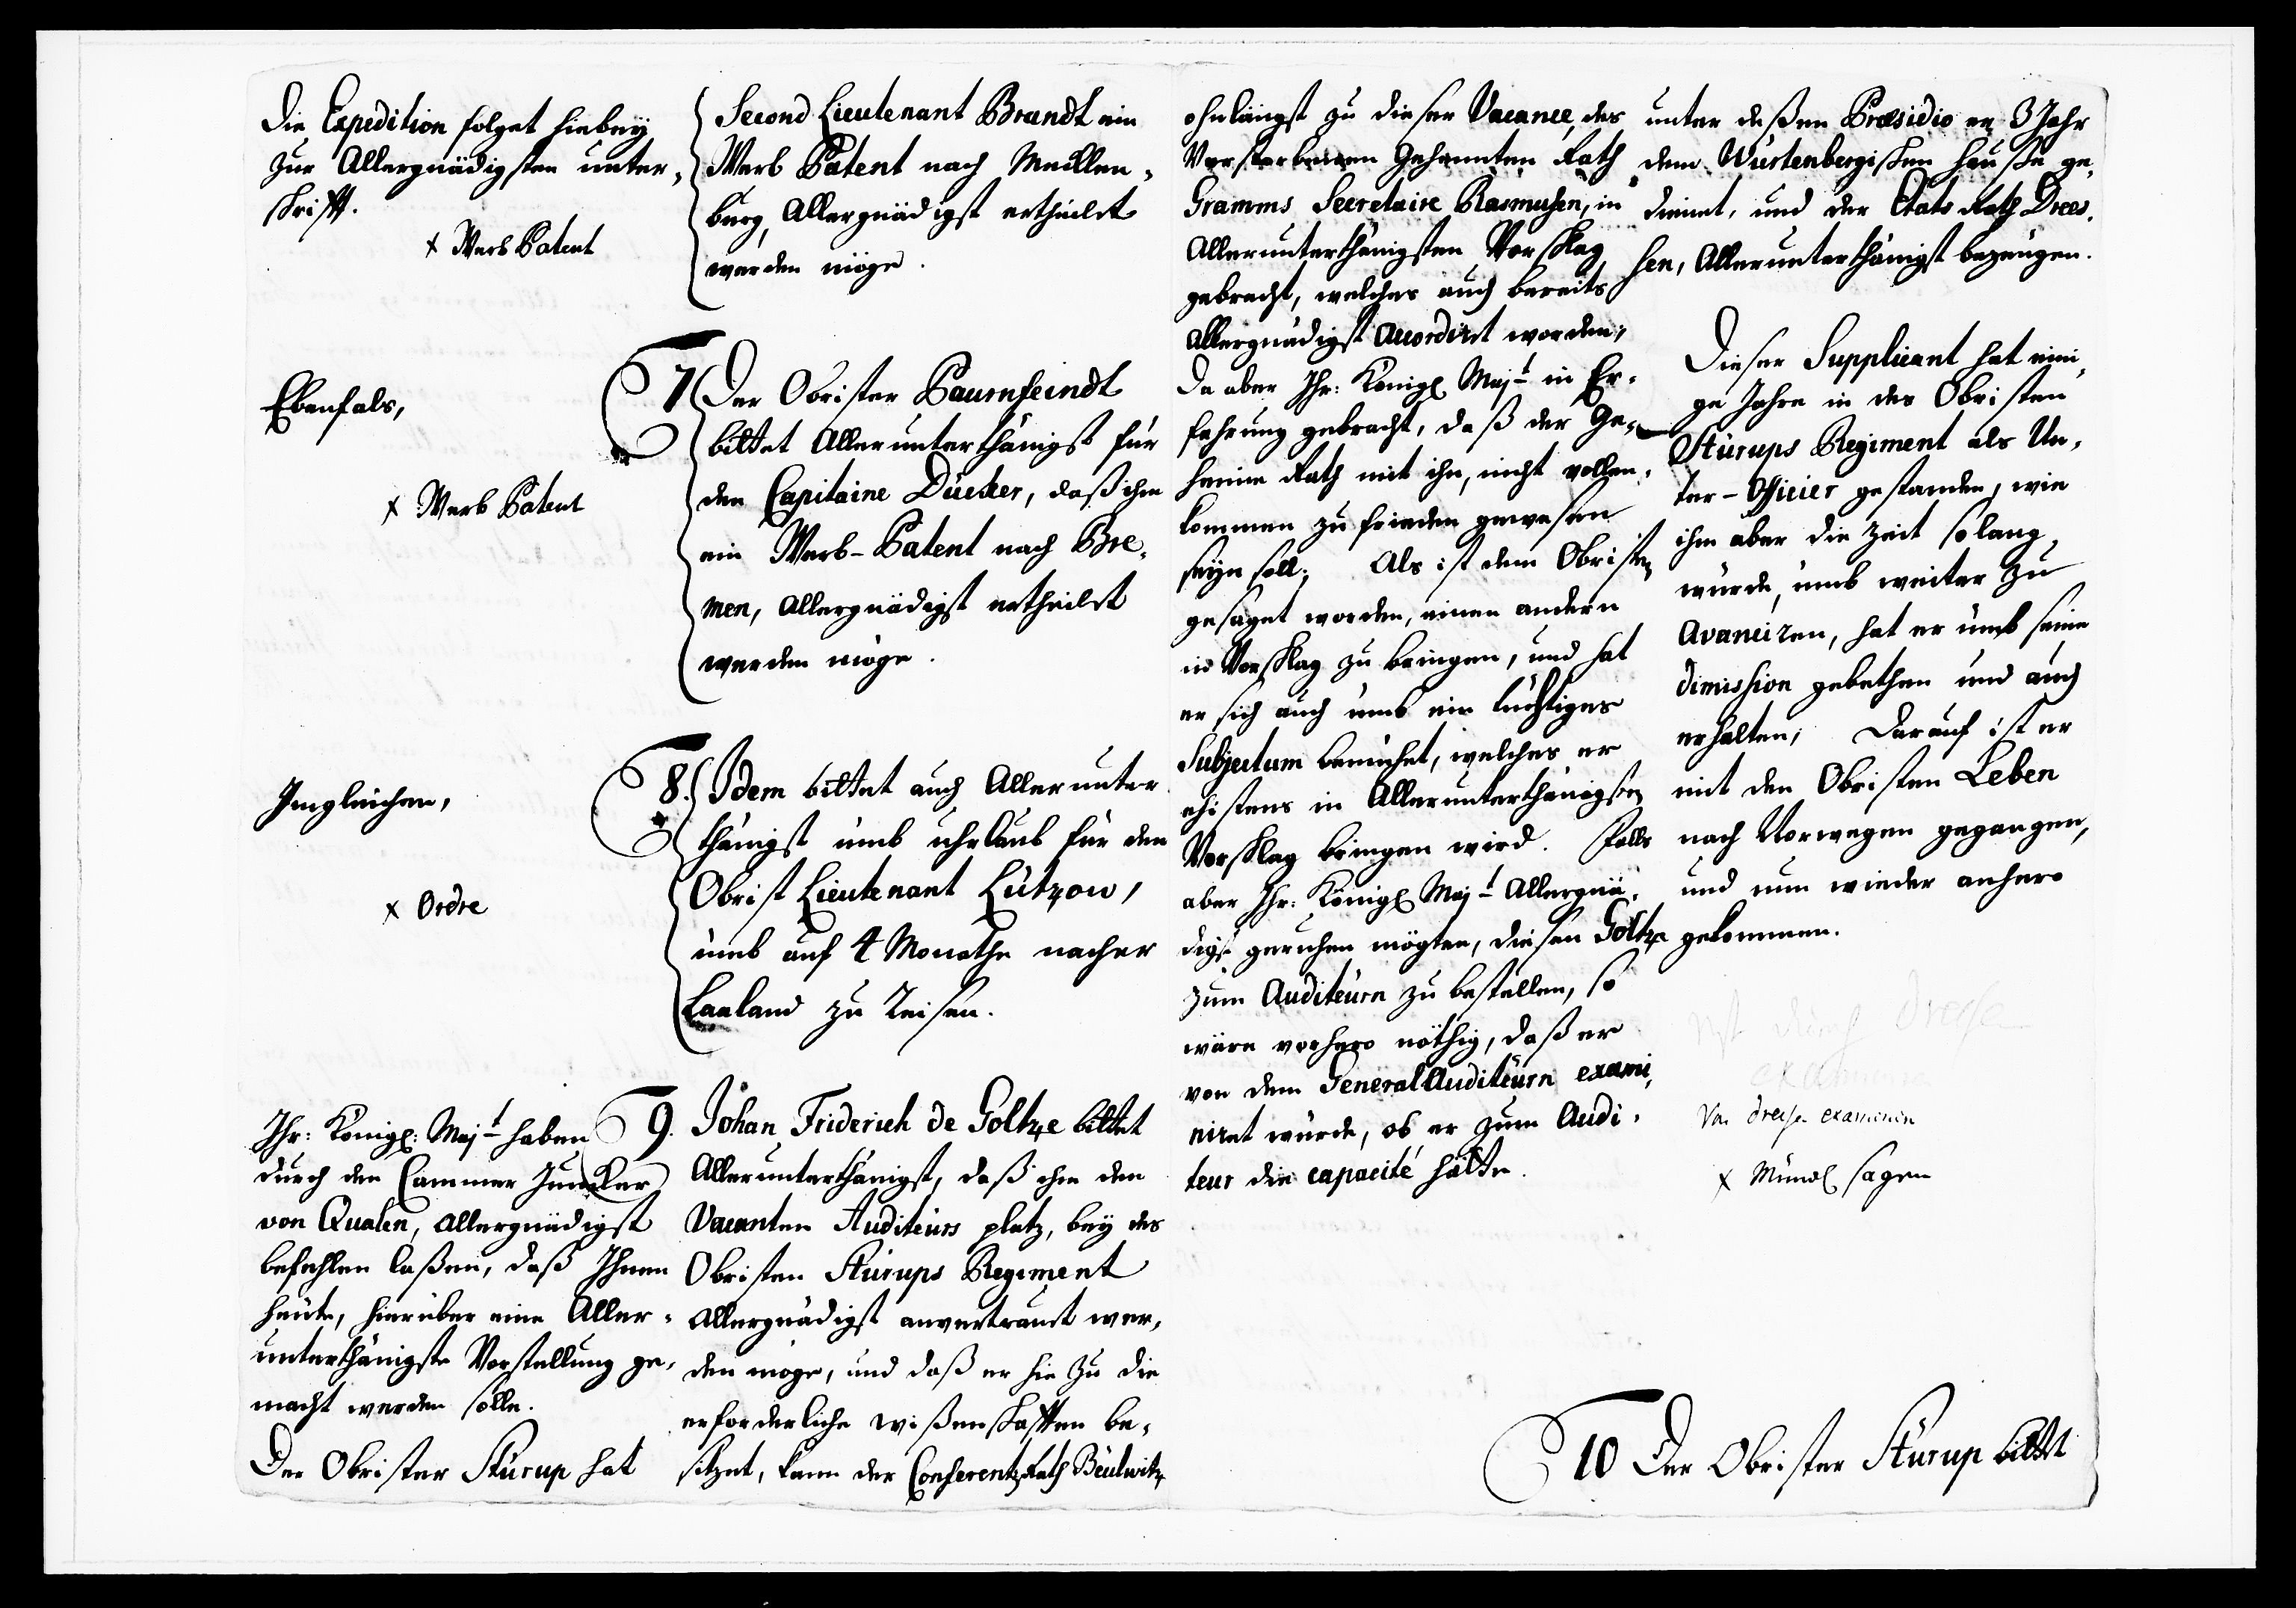 Die Expedition folget hiebeÿ
zur Allergnädigsten unter-
schrifft.
x Werb Patent
Second Lieutenant Brandt ein
Werb Patent nach Mecklen-
burg, Allergnädigst ertheilet
werden möge.
Ebenfals,
x Werb Patent
7 Der Obrister Paurnfeindt
bittet Allerunterthänigst für
den Capitaine Dücker, daß ihm
ein Werb-Patent nach Bre-
men, Allergnädigst ertheilet
werden möge.
Imgleichen,
x Ordre
8. Idem bittet auch Allerunter
thänigst umb uhrlaub für den
Obrist Lieutenant Lützow,
umb auf 4 Monathe nacher
Laaland zu reisen.
Ihr: Königl: Majt haben
durch den Cammer Juncker
von Qualen, Allergnädigst
befehlen laßen, daß Ihnen
heute, hierüber eine Aller-
unterthänigste Vorstellung ge-
macht werden solle.
Der Obrister Stürup hat
9. Johan Friderich de Goltze bittet
Allerunterthänigst, daß ihm den
Vacanten Auditeurs platz, beÿ des
Obristen Stürups Regiment
Allergnädigst anvertrauet wer-
den möge, und daß er hie zu die
erforderliche wißenschafften be-
sitzet, kann der Conferentz Rath Beulwitz
ohnlängst zu dieser Vacance, des
Verstorbenen Geheimten Rath
Gramms Secretaire Rasmusen, in
Allerunterthänigsten Vorschlag
gebracht, welches auch bereits
Allergnädigst accordiret worden;
Da aber Ihr: Königl Majt in Er-
fahrung gebracht, daß der Ge-
heime Rath mit ihn, nicht vollen-
kommen zu frieden gewesen
seÿn soll; Als ist dem Obristen
gesaget worden, einen andern
in Vorschlag zu bringen, und hat
er sich auch umb ein tüchtiges
Subjectum bemühet, welches er
ehistens in Allerunterthänigsten
Vorschlag bringen wird. Falls
aber Ihr: Königl Majt Allergnä-
digst geruhen mögten, diesen Goltze
zum Auditeurn zu bestellen, so
wäre vorhero nöthig, daß er
von dem General Auditeurn exami-
niret würde, ob er zum Audi-
teur die capacité hätte.
unter deßen Præsidio er 3 Jahr
dem Würtenbergischen hause ge-
dienet, und der Etats Rath Drees-
sen, Allerunterthänigst bezeugen.
Dieser Supplicant hat eini-
ge Jahre in des Obristen
Stürups Regiment als Un-
ter-Officier gestanden, wie
ihm aber die zeit so lang
würde, umb weiter zu
avanciren, hat er umb seine
dimission gebethen und auch
erhalten; Darauf ist er
mit den Obristen Leben
nach Norwegen gegangen,
und nun wieder anhero
gekommen.
durch Dreise
Von Dreise examiniren
x Mündl sagen
10 Der Obrister Stürup bittet